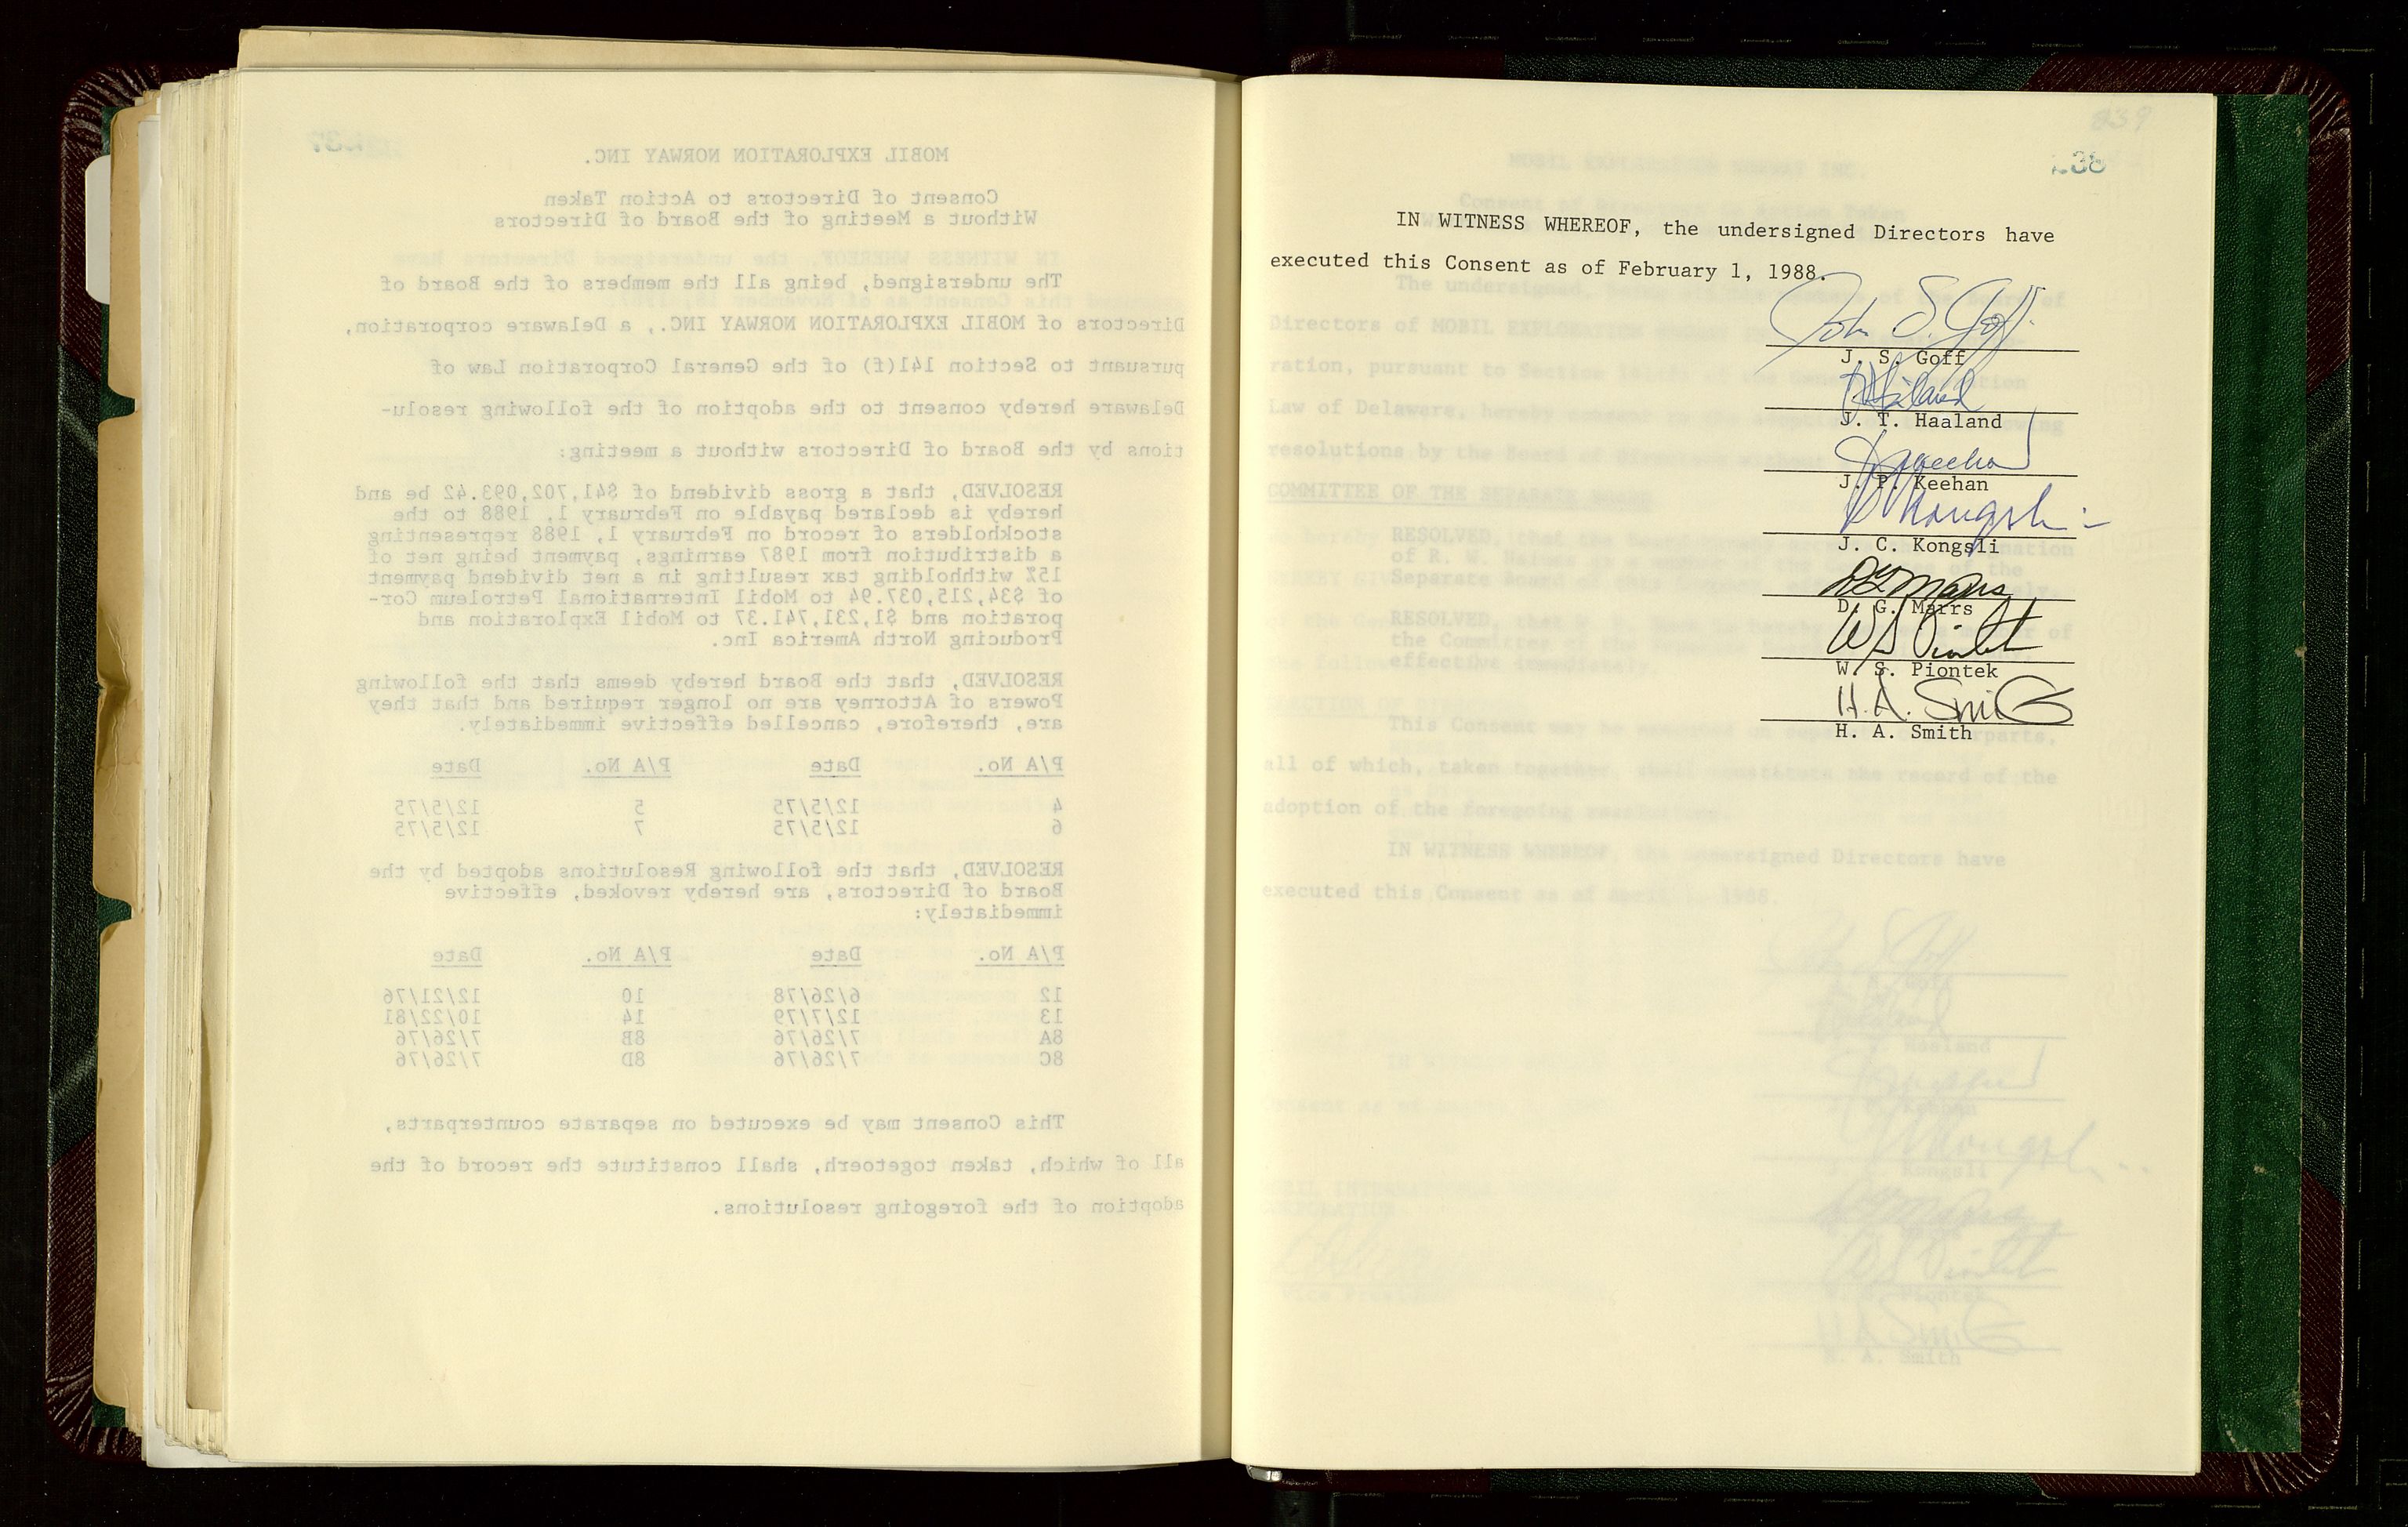 MOBIL EXPLORATION NORWAY INC.
Consent of Directors to Action Taken
Without a Meeting of the Board of Directors
The undersigned, being all the members of the Board of
Directors of MOBIL EXPLORATION NORWAY INC., a Delaware corporation,
pursuant to Section 141(f) of the General Corporation Law of
Delaware hereby consent to the adoption of the following resolu-
tions by the Board of Directors without a meeting:
RESOLVED, that a gross dividend of $41,702,093.42 be and
hereby is declared payable on February 1, 1988 to the
stockholders of record on February 1, 1988 representing
a distribution from 1987 earnings, payment being net of
15% withholding tax resulting in a net dividend payment
of $34,215,037.94 to Mobil International Petroleum Cor-
poration and $1,231,741.37 to Mobil Exploration and
Producing North America Inc.
RESOLVED, that the Board hereby deems that the following
Powers of Attorney are no longer required and that they
are, therefore, cancelled effective immediately.
P/A No. Date P/A No. Date
4 12/5/75 5 12/5/75
6 12/5/75 7 12/5/75
RESOLVED, that the following Resolutions adopted by the
Board of Directors, are hereby revoked, effective
immediately:
P/A No. Date P/A No. Date
12 6/26/78 10 12/21/76
13 12/7/79 14 10/22/81
8A 7/26/76 8B 7/26/76
8C 7/26/76 8D 7/26/76
This Consent may be executed on separate counterparts,
all of which, taken togetoerh, shall constitute the record of the
adoption of the foregoing resolutions.
239
238
IN WITNESS WHEREOF, the undersigned Directors have
executed this Consent as of February 1, 1988.
John S. Goff
J. S. Goff
J. T. Haaland
J. P. Keehan
J. C. Kongsli
D. G. Marrs
W. S. Piontek
H. A. Smith
H. A. Smith